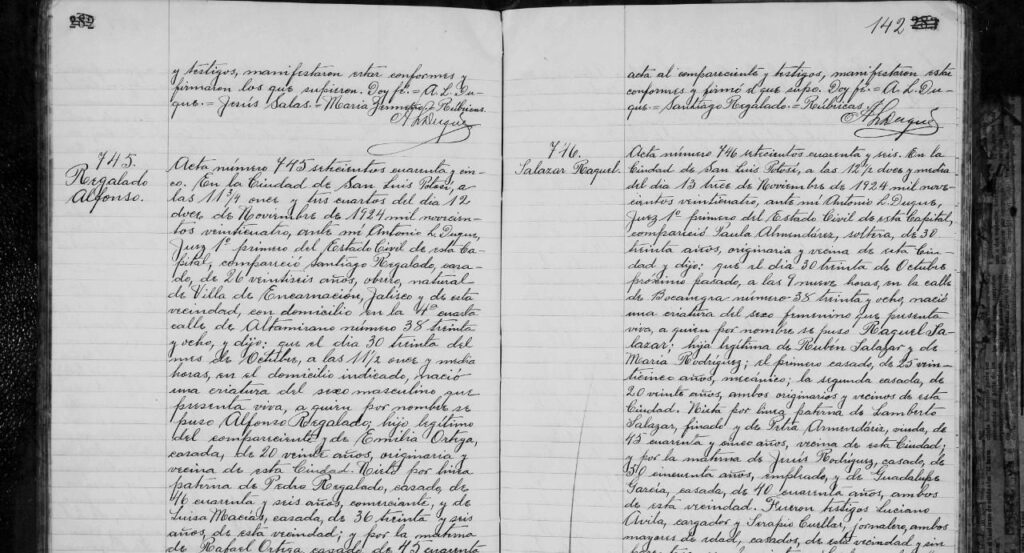 282
y testigos, manifestaron estar conformes y
firmaron los que supieron. Doy fé.= A. L. Du-
que.= Jesús Salas.= María Rúbricas.
A L Duque
745.
Regalado
Alfonso.
Acta número 745 setecientos cuarenta y cin-
co. En la Ciudad de San Luis Potosí, a
las 11 3/4 once y tres cuartos del día 12
doce de Noviembre de 1924 mil novecien-
tos veinticuatro, ante mí Antonio L. Duque,
Juez 1º primero del Estado Civil de esta Ca-
pital, compareció Santiago Regalado, casa-
do, de 26 veintiseis años, obrero, natural
de Villa de Encarnación, Jalisco y de esta
vecindad, con domicilio en la 4ª cuarta
calle de Altamirano número 38 treinta
y ocho, y dijo: que el día 30 treinta del
mes de Octubre, a las 11 1/2 once y media
horas, en el domicilio indicado, nació
una criatura del sexo masculino que
presenta viva, a quien por nombre se
puso Alfonso Regalado, hijo legítimo
del compareciente y de Emilia Ortega,
casada, de 20 veinte años, originaria y
vecina de esta Ciudad. Nieto por línea
paterna de Pedro Regalado, casado, de
46 cuarenta y seis años, comerciante, y de
Luisa Macías, casada, de 36 treinta y seis
años, de esta vecindad; y por la materna
de Rafael Ortega, casado, de 45 cuarenta
142
acta al compareciente y testigos, manifestaron estar
conformes y firmó el que supo. Doy fé.= A. L. Du-
que.= Santiago Regalado.= Rúbricas.
A L Duque
746.
Salazar Raquel.
Acta número 746 setecientos cuarenta y seis. En la
Ciudad de San Luis Potosí, a las 12 1/2 doce y media
del día 13 trece de Noviembre de 1924 mil nove-
cientos veinticuatro, ante mí Antonio L. Duque,
Juez 1º primero del Estado Civil de esta Capital,
compareció Paula Almendárez, soltera, de 30
treinta años, originaria y vecina de esta Ciu-
dad y dijo: que el día 30 treinta de Octubre
próximo pasado, a las 9 nueve horas, en la calle
de Bocanegra número 38 treinta y ocho, nació
una criatura del sexo femenino que presenta
viva, a quien por nombre se puso Raquel Sa-
lazar; hija legítima de Rubén Salazar y de
María Rodríguez; el primero casado, de 25 vein-
ticinco años, mecánico; la segunda casada, de
20 veinte años, ambos originarios y vecinos de esta
Ciudad. Nieta por línea paterna de Lamberto
Salazar, finado y de Petra Armendáriz, viuda, de
45 cuarenta y cinco años, vecina de esta Ciudad;
y por la materna de Jesús Rodríguez, casado, de
50 cincuenta años, empleado, y de Guadalupe
García, casada, de 40 cuarenta años, ambos
de esta vecindad. Fueron testigos Luciano
Avila, cargador y Serapio Cuellar, jornalero, ambos
mayores de edad, casados, de esta vecindad y sin